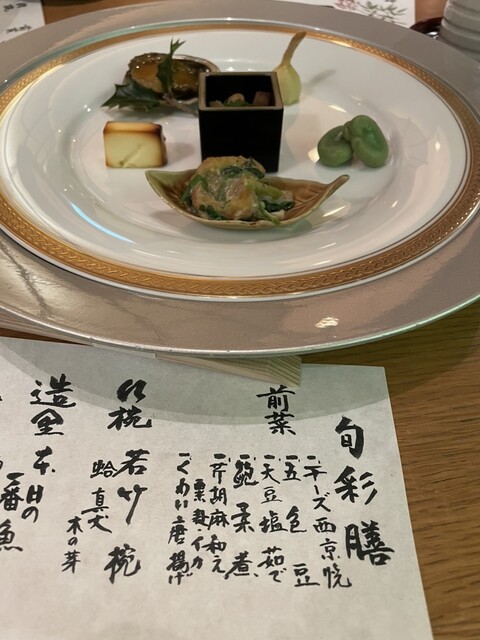 旬彩膳
前菜
一、チーズ西京焼
一、五色豆
一、天豆塩茹で
一、鮑柔煮
一、芹胡麻和え
一、くわい唐揚げ
吸椀 若竹椀
蛤真丈
木の芽
造里 本日の
一番魚